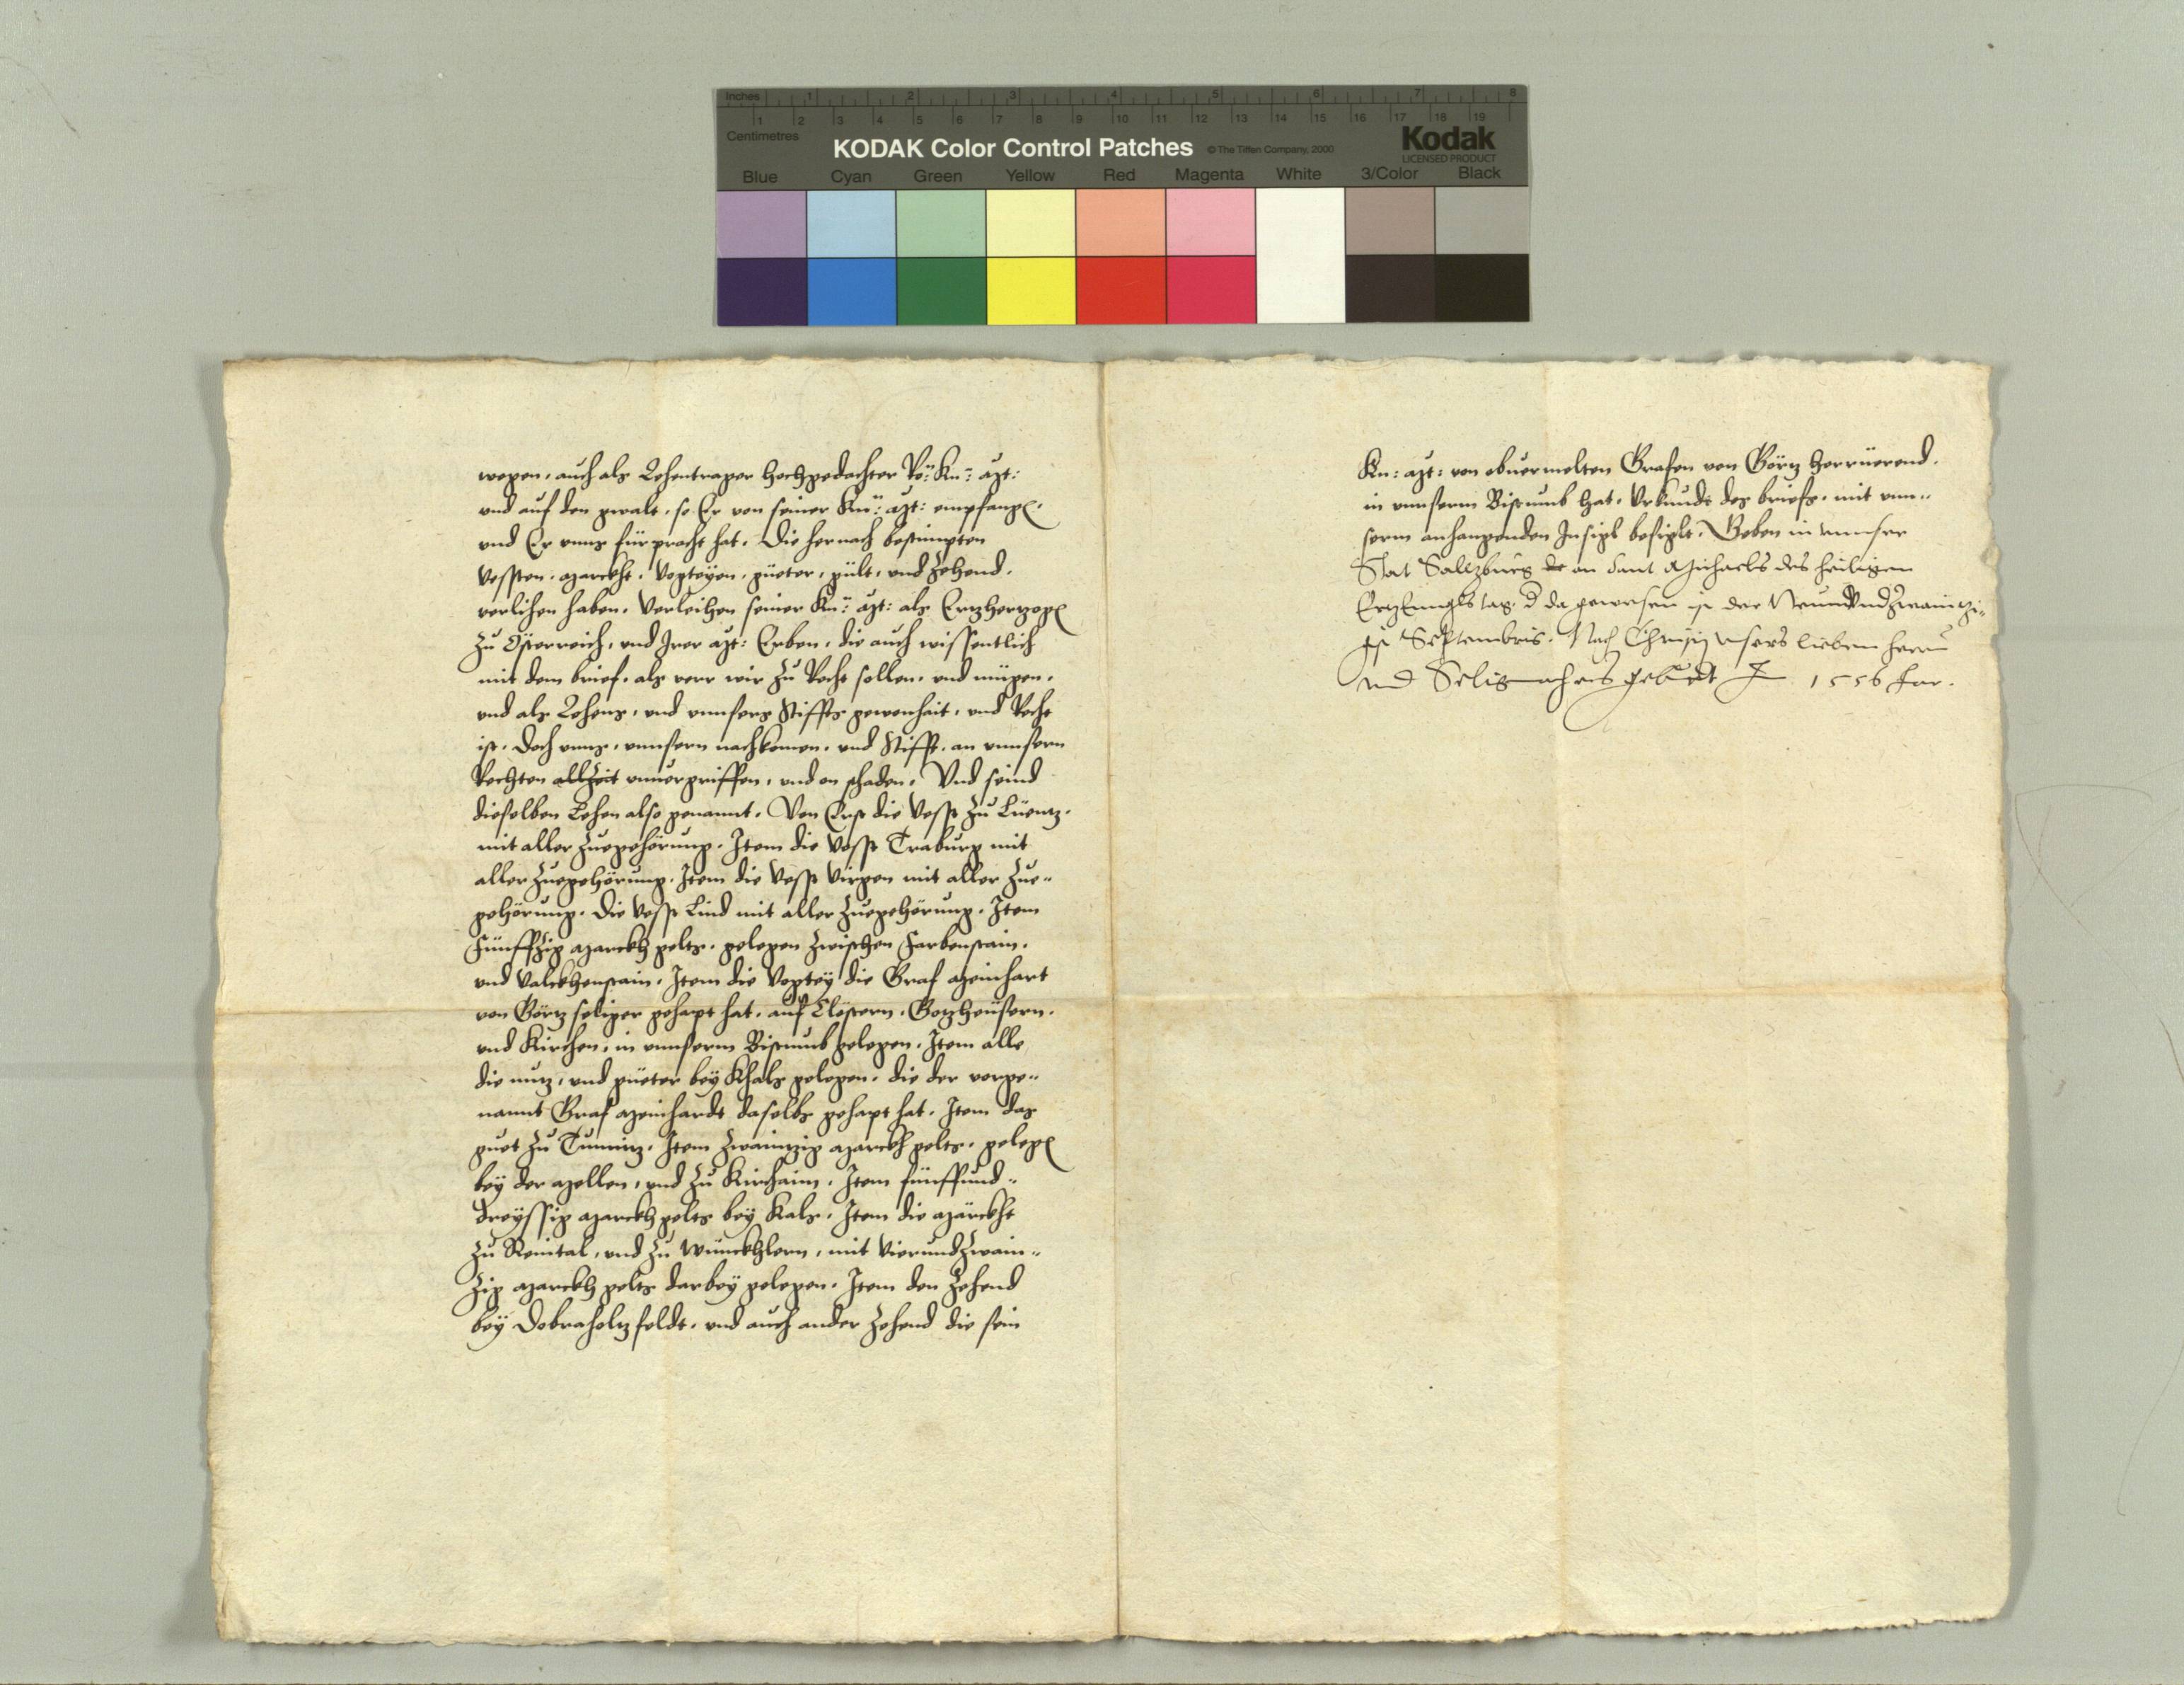 Inches 1 2 3 4 5 6 7 8
1 2 3 4 5 6 7 8 9 10 11 12 13 14 15 16 17 18 19
Centimetres
KODAK Color Control Patches © The Tiffen Company, 2000 Kodak
LICENSED PRODUCT
Blue Cyan Green Yellow Red Magenta White 3/Color Black
wegen, auch als Lehentrager hochgedachter Rö: Kü: Mt:
und auf den gwalt, so Er von seiner Kü: Mt: empfangen,
und Er unns fürpracht hat. Die hernach bestimpten
Vessten, Märckht, Vogteyen, güeter, gült, und Zehend,
verlihen haben. Verleihen seiner Kü: Mt: als Ertzhertzogen
zu Österreich, und Irer Mt: Erben, die auch wissentlich
mit dem brief, als verr wir zu Recht sollen, und mügen,
und als Lehens, und unnsers Stiffts gewonhait, und Recht
ist. Doch unns, unnsern nachkomen, und Stifft, an unnsern
Rechten allzeit unuergriffen, und on schaden. Und seind
dieselben Lehen also genannt. Von Erst die Vesst zu Lüentz,
mit aller Zuegehörung. Item die Vesst Traburg mit
aller Zuegehörung. Item die Vesst Virgen mit aller Zue-
gehörung. Die Vesst Lind mit aller Zuegehörung. Item
Fünffzig Marckh gelts, gelegen zwischen Farbenstain,
und Valckhenstain. Item die Vogtey die Graf Meinhart
von Görtz seliger gehapt hat, auf Clöstern, Gotzheusern,
und Kirchen, in unnserm Bistumb gelegen. Item alle
die nutz, und güeter bey Khals gelegen, die der vorge-
nannt Graf Meinhardt daselbs gehapt hat. Item das
guet zu Tumitz. Item Zwaintzig Marckh gelts, gelegen
bey der Mellen, und zu Kirchaim. Item fünffund-
dreyssig Marckh gelts bey Kals. Item die Märckht
zu Reintal, und zu Wünckhlern, mit Vierundzwain-
zig Marckh gelts darbey gelegen. Item den Zehend
bey Dobraholtzfeldt, und auch ander Zehend die sein
Kü: Mt: von obuermelten Grafen von Görtz herrüerend,
in unnserm Bistumb hat. Urkundt des briefs, mit unn-
serm anhangenden Insigl besiglt. Geben in unnser
Stat Saltzburg an Sant Michaels des heiligen
Ertzengls tag, d da gewesen ist der Neunundzwaintzi-
gist Septembris. Nach Christj unsers lieben herrn
und Seligmachers geburdt Im 1556 Jar.